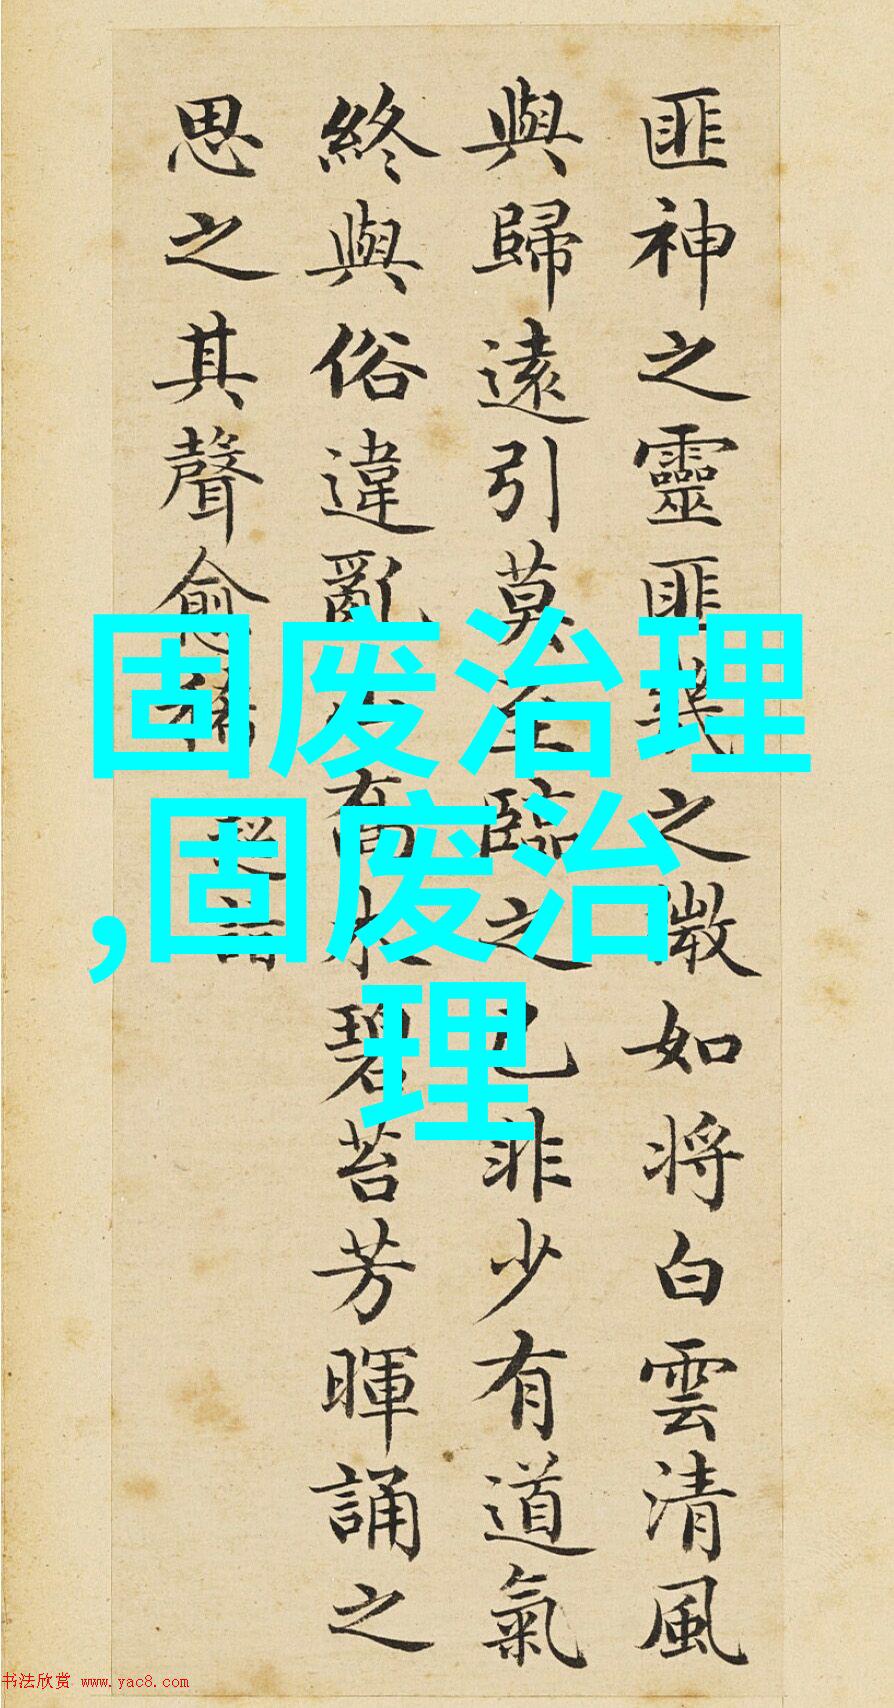 匪神之靈匪之微如將白雲清風
與歸遠引莫至臨之已非少有道氣
終與俗違亂喬木碧苔芳暉誦之
思之其聲愈稀
超詣
固废治理
,固废治
理
书法欣赏 www.yac8.com